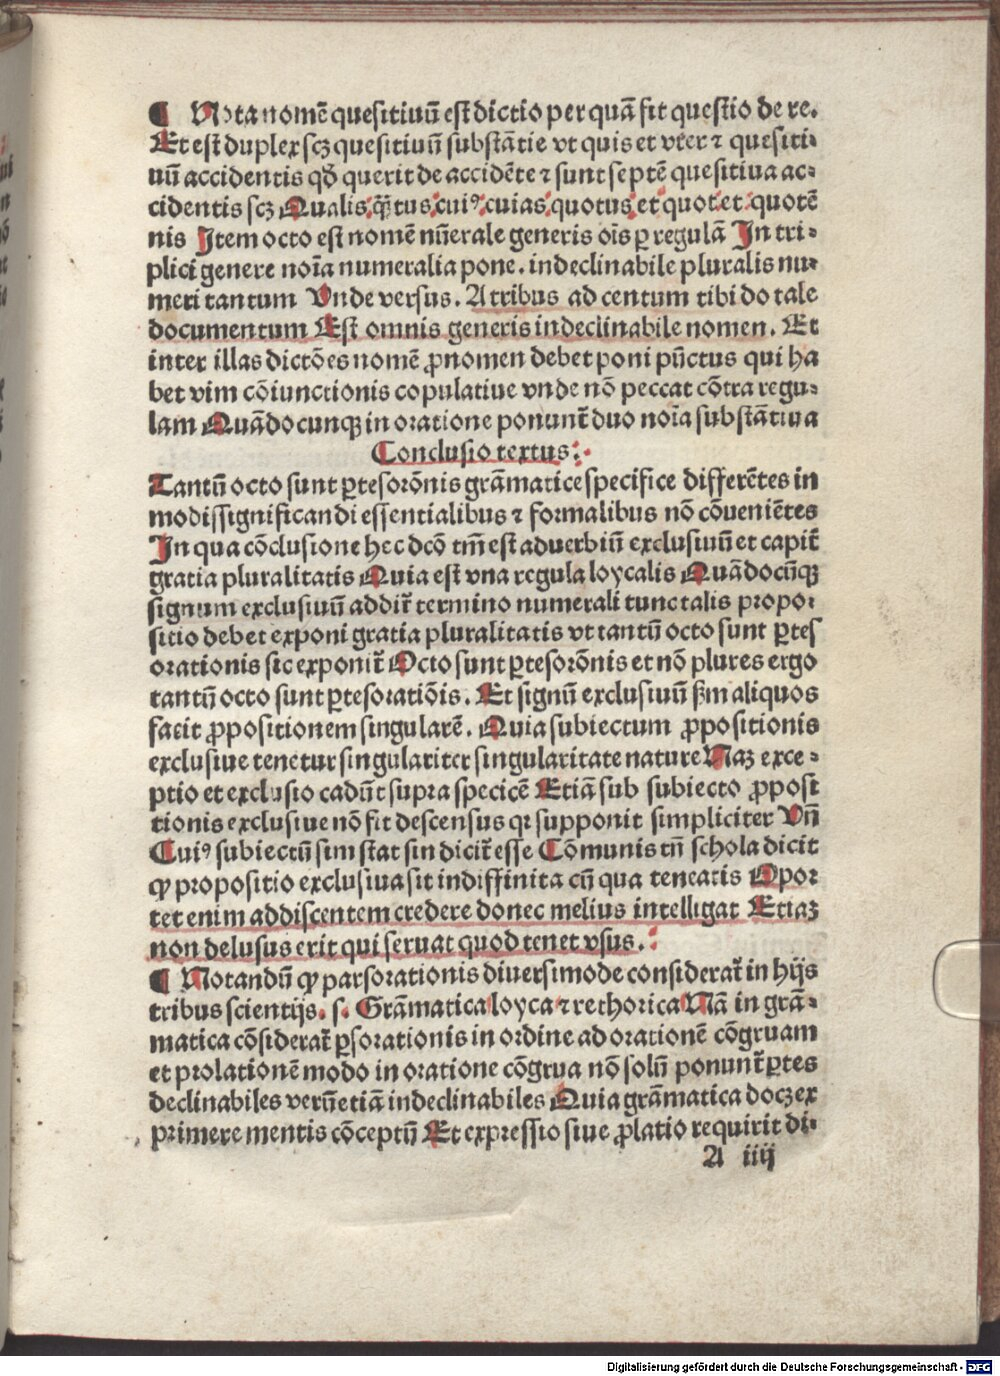 ¶ Nota nomē quesitiuū est dictio per quā fit questio de re.
Et est duplex scꝫ quesitiuū substātie vt quis et vter ⁊ quesiti⸗
uū accidentis qđ querit de accidēte ⁊ sunt septē quesitiua ac⸗
cidentis scꝫ Qualis quātus cuiꝰ cuias quotus et quot et quotē
nis Item octo est nomē nūerale generis oīs ꝑ regulā In tri⸗
plici genere noīa numeralia pone. indeclinabile pluralis nu⸗
meri tantum Vnde versus. A tribus ad centum tibi do tale
documentum Est omnis generis indeclinabile nomen. Et
inter illas dictōes nomē ꝓnomen debet poni pūctus qui ha
bet vim cōiunctionis copulatiue vnde nō peccat cōtra regu⸗
lam Quādocunqꝫ in oratione ponunt̄ duo noīa substātiua
Conclusio textus:.
Tantū octo sunt ꝑtes orōnis grāmatice specifice differētes in
modis significandi essentialibus ⁊ formalibus nō cōueniētes
In qua cōclusione hec dcō tm̄ est aduerbiū exclusiuū et capit̄
gratia pluralitatis Quia est vna regula loycalis Quādocūqꝫ
signum exclusiuū addit̄ termino numerali tunc talis propo⸗
sitio debet exponi gratia pluralitatis vt tantū octo sunt ꝑtes
orationis sic exponit̄ Octo sunt ꝑtes orōnis et nō plures ergo
tantū octo sunt ꝑtes oratiōis. Et signū exclusiuū ẜm aliquos
facit ꝓpositionem singularē. Quia subiectum ꝓpositionis
exclusiue tenetur singulariter singularitate nature Naꝫ exce⸗
ptio et exclusio cadūt supra speciē Etiā sub subiecto ꝓposi
tionis exclusiue nō fit descensus qꝛ supponit simpliciter Vn̄
Cuiꝰ subiectū sim stat sin dicit̄ esse Cōmunis tn̄ schola dicit
ꝙ propositio exclusiua sit indiffinita cū qua teneatis Opor
tet enim addiscentem credere donec melius intelligat Etiaꝫ
non delusus erit qui seruat quod tenet vsus.
¶ Notandū ꝙ pars orationis diuersimode considerat̄ in hijs
tribus scientijs. s. Grāmatica loyca ⁊ rethorica Nā in grā⸗
matica cōsiderat̄ ꝑs orationis in ordine ad orationē cōgruam
et prolationē modo in oratione cōgrua nō solū ponunt̄ ꝑtes
declinabiles verū etiā indeclinabiles Quia grāmatica docꝫ ex
primere mentis cōceptū Et expressio siue ꝓlatio requirit di⸗
A iiij
Digitalisierung gefördert durch die Deutsche Forschungsgemeinschaft - DFG